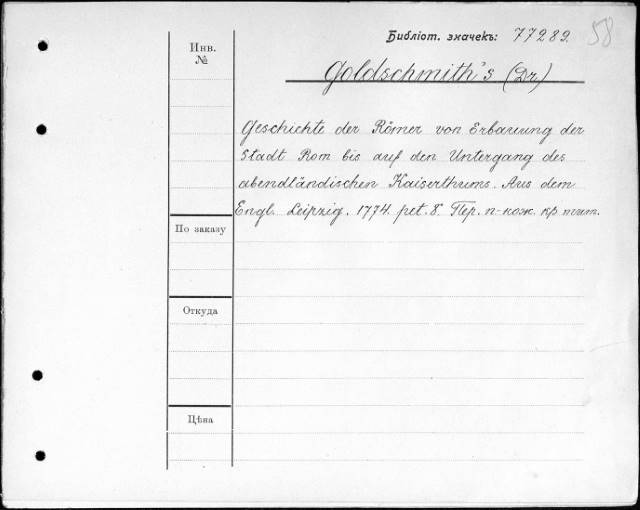 Библіот. значекъ: 77289.
58
Инв.
№
Goldschmith's (Dr)
Geschichte der Römer von Erbauung der
Stadt Rom bis auf den Untergang des
abendländischen Kaiserthums. Aus dem
Engl. Leipzig. 1774. pet. 8. Пер. п-кож. кр тит.
По заказу
Откуда
Цѣна